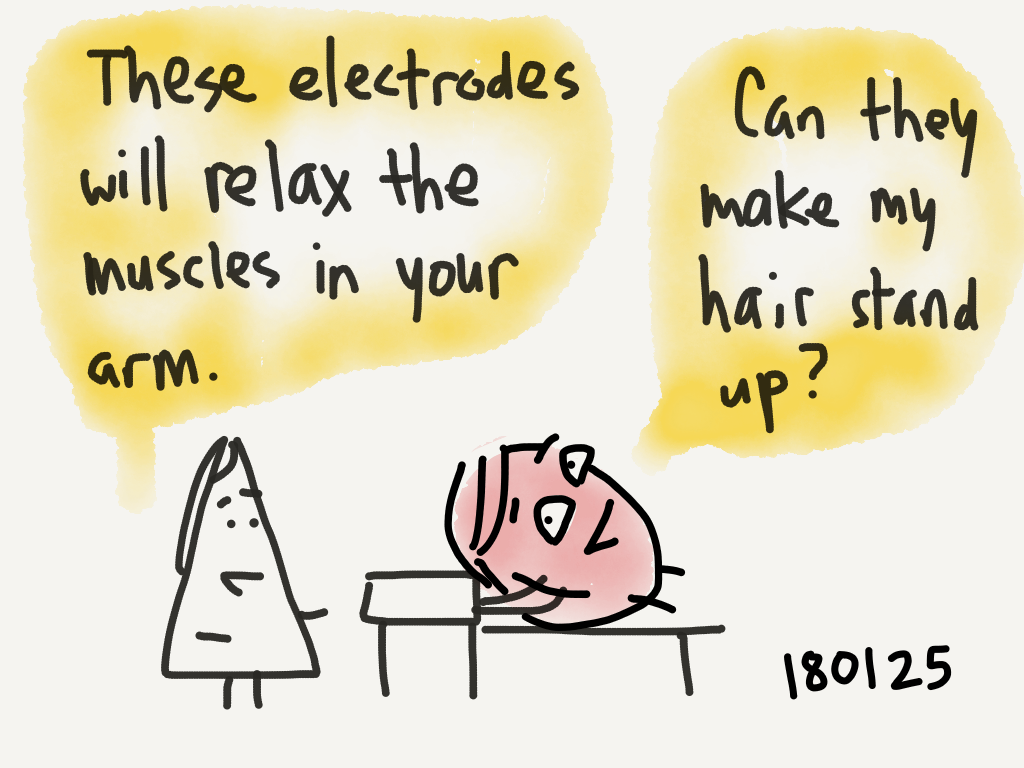 These electrodes
will relax the
muscles in your
arm.
Can they
make my
hair stand
up?
180125